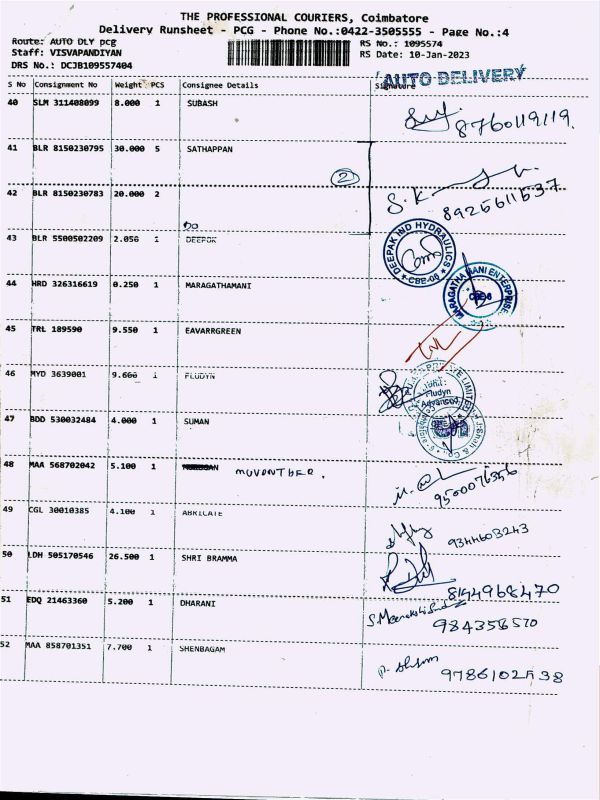 THE PROFESSIONAL COURIERS, Coimbatore
Delivery Runsheet - PCG - Phone No.:0422-3505555 - Page No.:4
Route: AUTO DLY pcg RS No.: 1095574
Staff: VISVAPANDIYAN RS Date: 10-Jan-2023
DRS No.: DCJB109557404
AUTO DELIVERY
S No Consignment No Weight PCS Consignee Details Signature
40 SLM 311408099 8.000 1 SUBASH
8760119119.
41 BLR 8150230795 30.000 5 SATHAPPAN
2
42 BLR 8150230783 20.000 2
S.K
8925611537
DO
43 BLR 5500502209 2.056 1 DEEPOK
DEEPAK IND HYDRAULICS
CBE-06
44 HRD 326316619 0.250 1 MARAGATHAMANI
MARAGATHAMANI ENTERPRISE
CBE-6
45 TRL 189590 9.550 1 EAVARRGREEN
46 MYD 3639001 9.666 1 FLUDYN
PRIVATE LIMITED
Unit:
Fludyn
Advanced
47 BDD 530032484 4.000 1 SUMAN
48 MAA 568702042 5.100 1
9500076356
49 CGL 30010385 4.100 1 ABRICATE
9344603243
50 LDH 505170546 26.500 1 SHRI BRAMMA
8144968470
51 EDQ 21463360 5.200 1 DHARANI
984358520
52 MAA 858701351 7.700 1 SHENBAGAM